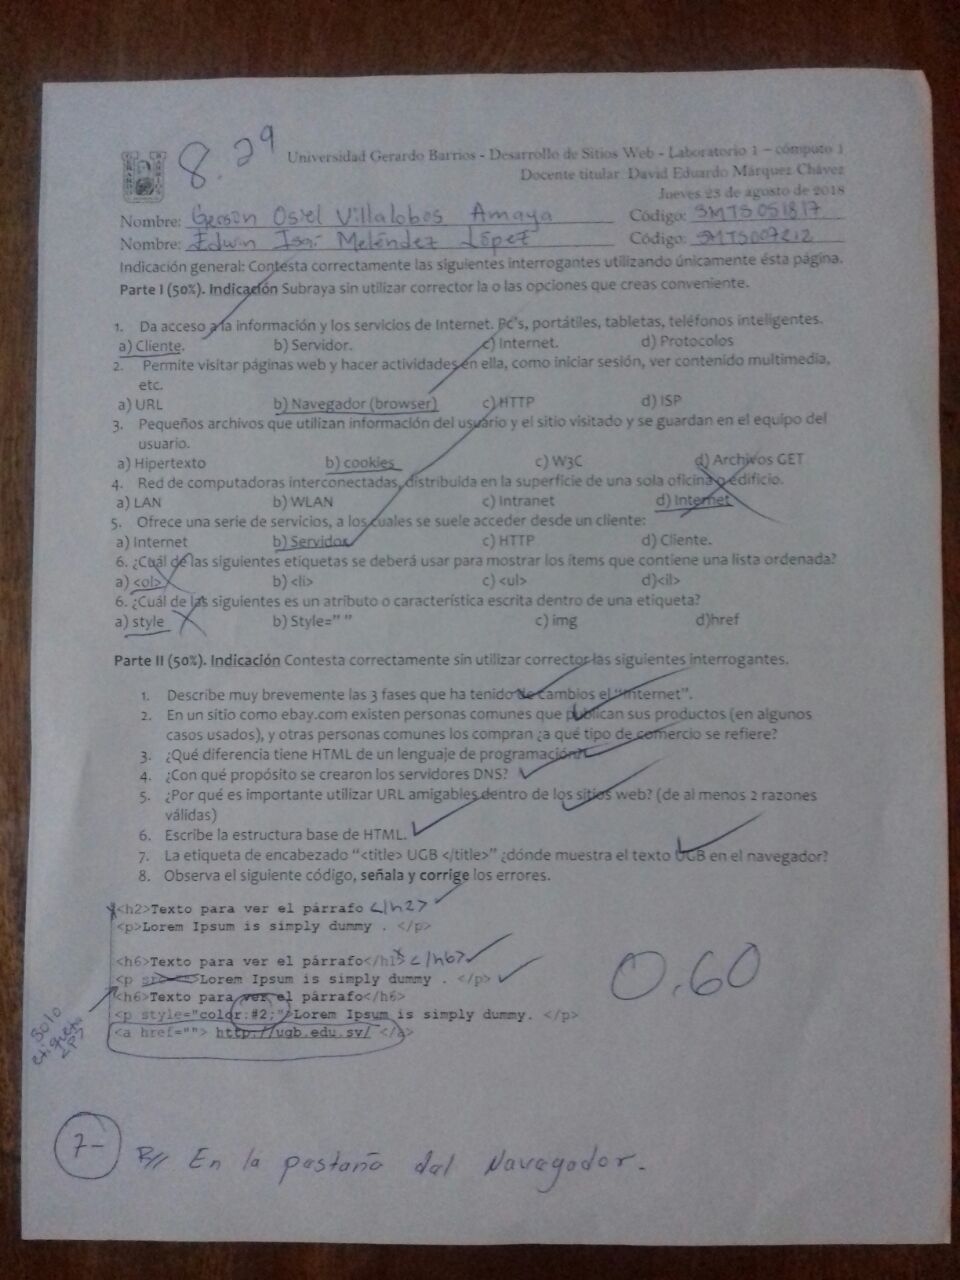 8.29
Universidad Gerardo Barrios - Desarrollo de Sitios Web - Laboratorio 1 – cómputo 1
Docente titular David Eduardo Márquez Chávez
Jueves 23 de agosto de 2018
Nombre: Gerson Osiel Villalobos Amaya Código: SMTS051817
Nombre: Edwin Isaí Meléndez López Código: SMTS007212
Indicación general: Contesta correctamente las siguientes interrogantes utilizando únicamente ésta página.
Parte I (50%). Indicación Subraya sin utilizar corrector la o las opciones que creas conveniente.
1. Da acceso a la información y los servicios de Internet. Pc's, portátiles, tabletas, teléfonos inteligentes.
a) Cliente. b) Servidor. c) Internet. d) Protocolos
2. Permite visitar páginas web y hacer actividades en ella, como iniciar sesión, ver contenido multimedia,
etc.
a) URL b) Navegador (browser) c) HTTP d) ISP
3. Pequeños archivos que utilizan información del usuario y el sitio visitado y se guardan en el equipo del
usuario.
a) Hipertexto b) cookies c) W3C d) Archivos GET
4. Red de computadoras interconectadas, distribuida en la superficie de una sola oficina o edificio.
a) LAN b) WLAN c) Intranet d) Internet
5. Ofrece una serie de servicios, a los cuales se suele acceder desde un cliente:
a) Internet b) Servidor c) HTTP d) Cliente.
6. ¿Cuál de las siguientes etiquetas se deberá usar para mostrar los ítems que contiene una lista ordenada?
a) <ol> b) <li> c) <ul> d)<il>
6. ¿Cuál de las siguientes es un atributo o característica escrita dentro de una etiqueta?
a) style b) Style=" " c) img d)href
Parte II (50%). Indicación Contesta correctamente sin utilizar corrector las siguientes interrogantes.
1. Describe muy brevemente las 3 fases que ha tenido de cambios el "Internet".
2. En un sitio como ebay.com existen personas comunes que publican sus productos (en algunos
casos usados), y otras personas comunes los compran ¿a qué tipo de comercio se refiere?
3. ¿Qué diferencia tiene HTML de un lenguaje de programación?
4. ¿Con qué propósito se crearon los servidores DNS?
5. ¿Por qué es importante utilizar URL amigables dentro de los sitios web? (de al menos 2 razones
válidas)
6. Escribe la estructura base de HTML.
7. La etiqueta de encabezado "<title> UGB </title>" ¿dónde muestra el texto UGB en el navegador?
8. Observa el siguiente código, señala y corrige los errores.
<h2>Texto para ver el párrafo </h2>
<p>Lorem Ipsum is simply dummy . </p>
<h6>Texto para ver el párrafo</h15 </h6>
<p Lorem Ipsum is simply dummy . </p>
<h6>Texto para ver el párrafo</h6>
<p style="color:#2;">Lorem Ipsum is simply dummy. </p>
<a href=""> http://ugb.edu.sv/ </a>
0.60
Solo
etiqueta
<P>
7- R// En la pestaña del Navegador.